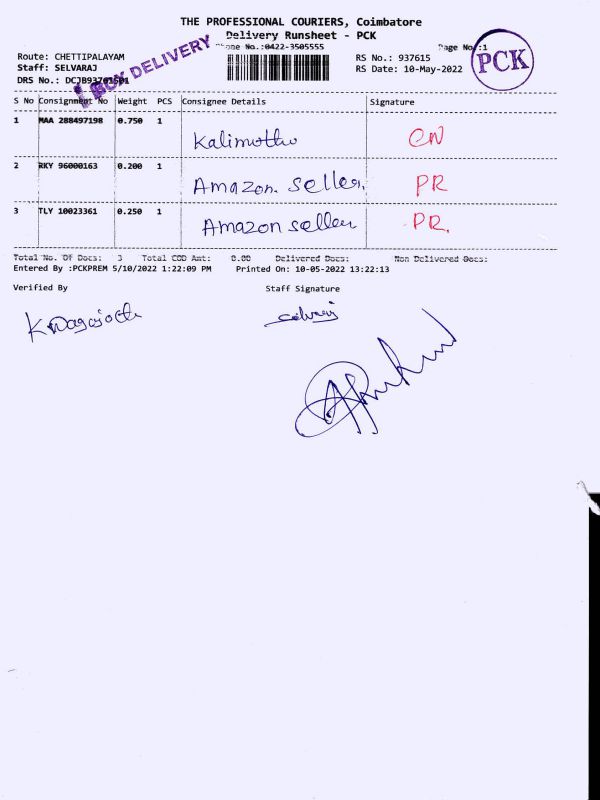 THE PROFESSIONAL COURIERS, Coimbatore
Delivery Runsheet - PCK
Phone No.:0422-3505555 Page No.:1
Route: CHETTIPALAYAM RS No.: 937615
Staff: SELVARAJ RS Date: 10-May-2022
DRS No.:
DELIVERY
PCK
S No Consignment No Weight PCS Consignee Details Signature
1 MAA 288497198 0.750 1 Kalimuthu CN
2 RKY 96000163 0.200 1 Amazon. seller. PR
3 TLY 10023361 0.250 1 Amazon seller PR.
Total No. Of Docs: 3 Total COD Amt: 0.00 Delivered Docs: Non Delivered Docs:
Entered By :PCKPREM 5/10/2022 1:22:09 PM Printed On: 10-05-2022 13:22:13
Verified By Staff Signature